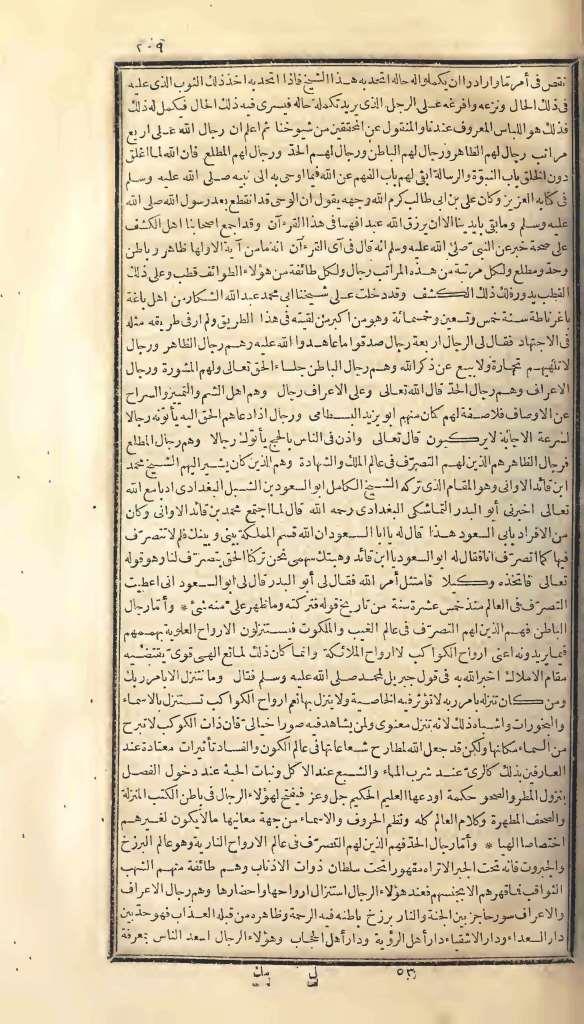 ٢٠٩
نقص في أمر ما وأرادوا أن يكملوا له حاله اتحد به هذا الشيخ فاذا اتحد به أخذ ذلك الثوب الذى عليه
فى ذلك الحال ونزعه وأفرغه على الرجل الذى يريد تكملة حاله فيسرى فيه ذلك الحال فيكمل له ذلك
فذلك هو اللباس المعروف عندنا والمنقول عن المحققين من شيوخنا ثم اعلم ان رجال الله على أربع
مراتب رجال لهم الظاهر ورجال لهم الباطن ورجال لهم الحد ورجال لهم المطلع فان الله لما أغلق
دون الخلق باب النبوة والرسالة أبقى لهم باب الفهم عن الله فيما أوحى به الى نبيه صلى الله عليه وسلم
فى كتابه العزيز وكان على بن أبى طالب كرم الله وجهه يقول ان الوحى قد انقطع بعد رسول الله صلى الله
عليه وسلم وما بقى بايدينا الا أن يرزق الله عبدا فهما فى هذا القرءآن وقد أجمع أصحابنا أهل الكشف
على صحة خبر عن النبى صلى الله عليه وسلم انه قال فى آى القرءآن انه ما من آية الا ولها ظاهر وباطن
وحد ومطلع ولكل مرتبة من هذه المراتب رجال ولكل طائفة من هؤلاء الطوائف قطب وعلى ذلك
القطب يدور فلك ذلك الكشف وقد دخلت على شيخنا أبى محمد عبد الله الشكاز من أهل باغة
باغرناطة سنة خمس وتسعين وخمسمائة وهو من أكبر من لقيته فى هذا الطريق ولم أر فى طريقه مثله
فى الاجتهاد فقال لى الرجال أربعة رجال صدقوا ما عاهدوا الله عليه وهم رجال الظاهر ورجال
لا تلهيهم تجارة ولا بيع عن ذكر الله وهم رجال الباطن جلساء الحق تعالى ولهم المشورة ورجال
الاعراف وهم رجال الحد قال الله تعالى وعلى الاعراف رجال وهم أهل الشم والتمييز والسراح
عن الاوصاف فلا صفة لهم كان منهم أبو يزيد البسطامى ورجال اذا دعاهم الحق اليه يأتونه رجالا
لسرعة الاجابة لا يركبون قال تعالى وأذن فى الناس بالحج يأتوك رجالا وهم رجال المطلع
فرجال الظاهر هم الذين لهم التصرف فى عالم الملك والشهادة وهم الذين كان يشير اليهم الشيخ محمد
ابن قائد الاوانى وهو المقام الذى تركه الشيخ الكامل أبو السعود بن الشبل البغدادى أدبا مع الله
تعالى أخبرنى أبو البدر التماشكى البغدادى رحمه الله قال لما اجتمع محمد بن قائد الاوانى وكان
من الافراد بأبى السعود هذا قال له يا أبا السعود ان الله قسم المملكة بينى وبينك فلم لا تتصرف
فيها كما أتصرف أنا فقال له أبو السعود يا ابن قائد وهبتك سهمى نحن تركنا الحق يتصرف لنا وهو قوله
تعالى فاتخذه وكيلا فامتثل أمر الله فقال لى أبو البدر قال لى أبو السعود انى أعطيت
التصرف فى العالم منذ خمس عشرة سنة من تاريخ قوله فتركته وما ظهر على منه شئ * وأما رجال
الباطن فهم الذين لهم التصرف فى عالم الغيب والملكوت فيستنزلون الارواح العلوية بهممهم
فيما يريدونه أعنى أرواح الكواكب لا أرواح الملائكة وانما كان ذلك لمانع الهى قوى يقتضيه
مقام الاملاك أخبر الله به فى قول جبريل لمحمد صلى الله عليه وسلم فقال وما نتنزل الا بأمر ربك
ومن كان تنزله بأمر ربه لا تؤثر فيه الخاصية ولا ينزل بها نعم أرواح الكواكب تستنزل بالاسماء
والبخورات وأشباه ذلك لانه تنزل معنوى ولمن يشاهد فيه صورا خيالى فان ذات الكوكب لا تبرح
من السماء مكانها ولكن قد جعل الله لمطارح شعاعاتها فى عالم الكون والفساد تأثيرات معتادة عند
العارفين بذلك كالرى عند شرب الماء والشبع عند الاكل ونبات الحبة عند دخول الفصل
بنزول المطر والصحو حكمة أودعها العليم الحكيم جل وعز فيفتح لهؤلاء الرجال فى باطن الكتب المنزلة
والصحف المطهرة وكلام العالم كله ونظم الحروف والاسماء من جهة معانيها ما لا يكون لغيرهم
اختصاصا الهيا * وأما رجال الحد فهم الذين لهم التصرف فى عالم الارواح النارية وهو عالم البرزخ
والجبروت فانه تحت الجبر ألا تراه مقهورا تحت سلطان ذوات الاذناب وهم طائفة منهم الشهب
الثواقب فما قهرهم الا بجنسهم فعند هؤلاء الرجال استنزال أرواحها واحضارها وهم رجال الاعراف
والاعراف سور حاجز بين الجنة والنار برزخ باطنه فيه الرحمة وظاهره من قبله العذاب فهو حد بين
دار السعداء ودار الاشقياء دار أهل الرؤية ودار أهل الحجاب وهؤلاء الرجال أسعد الناس بمعرفة
٥٣ ل